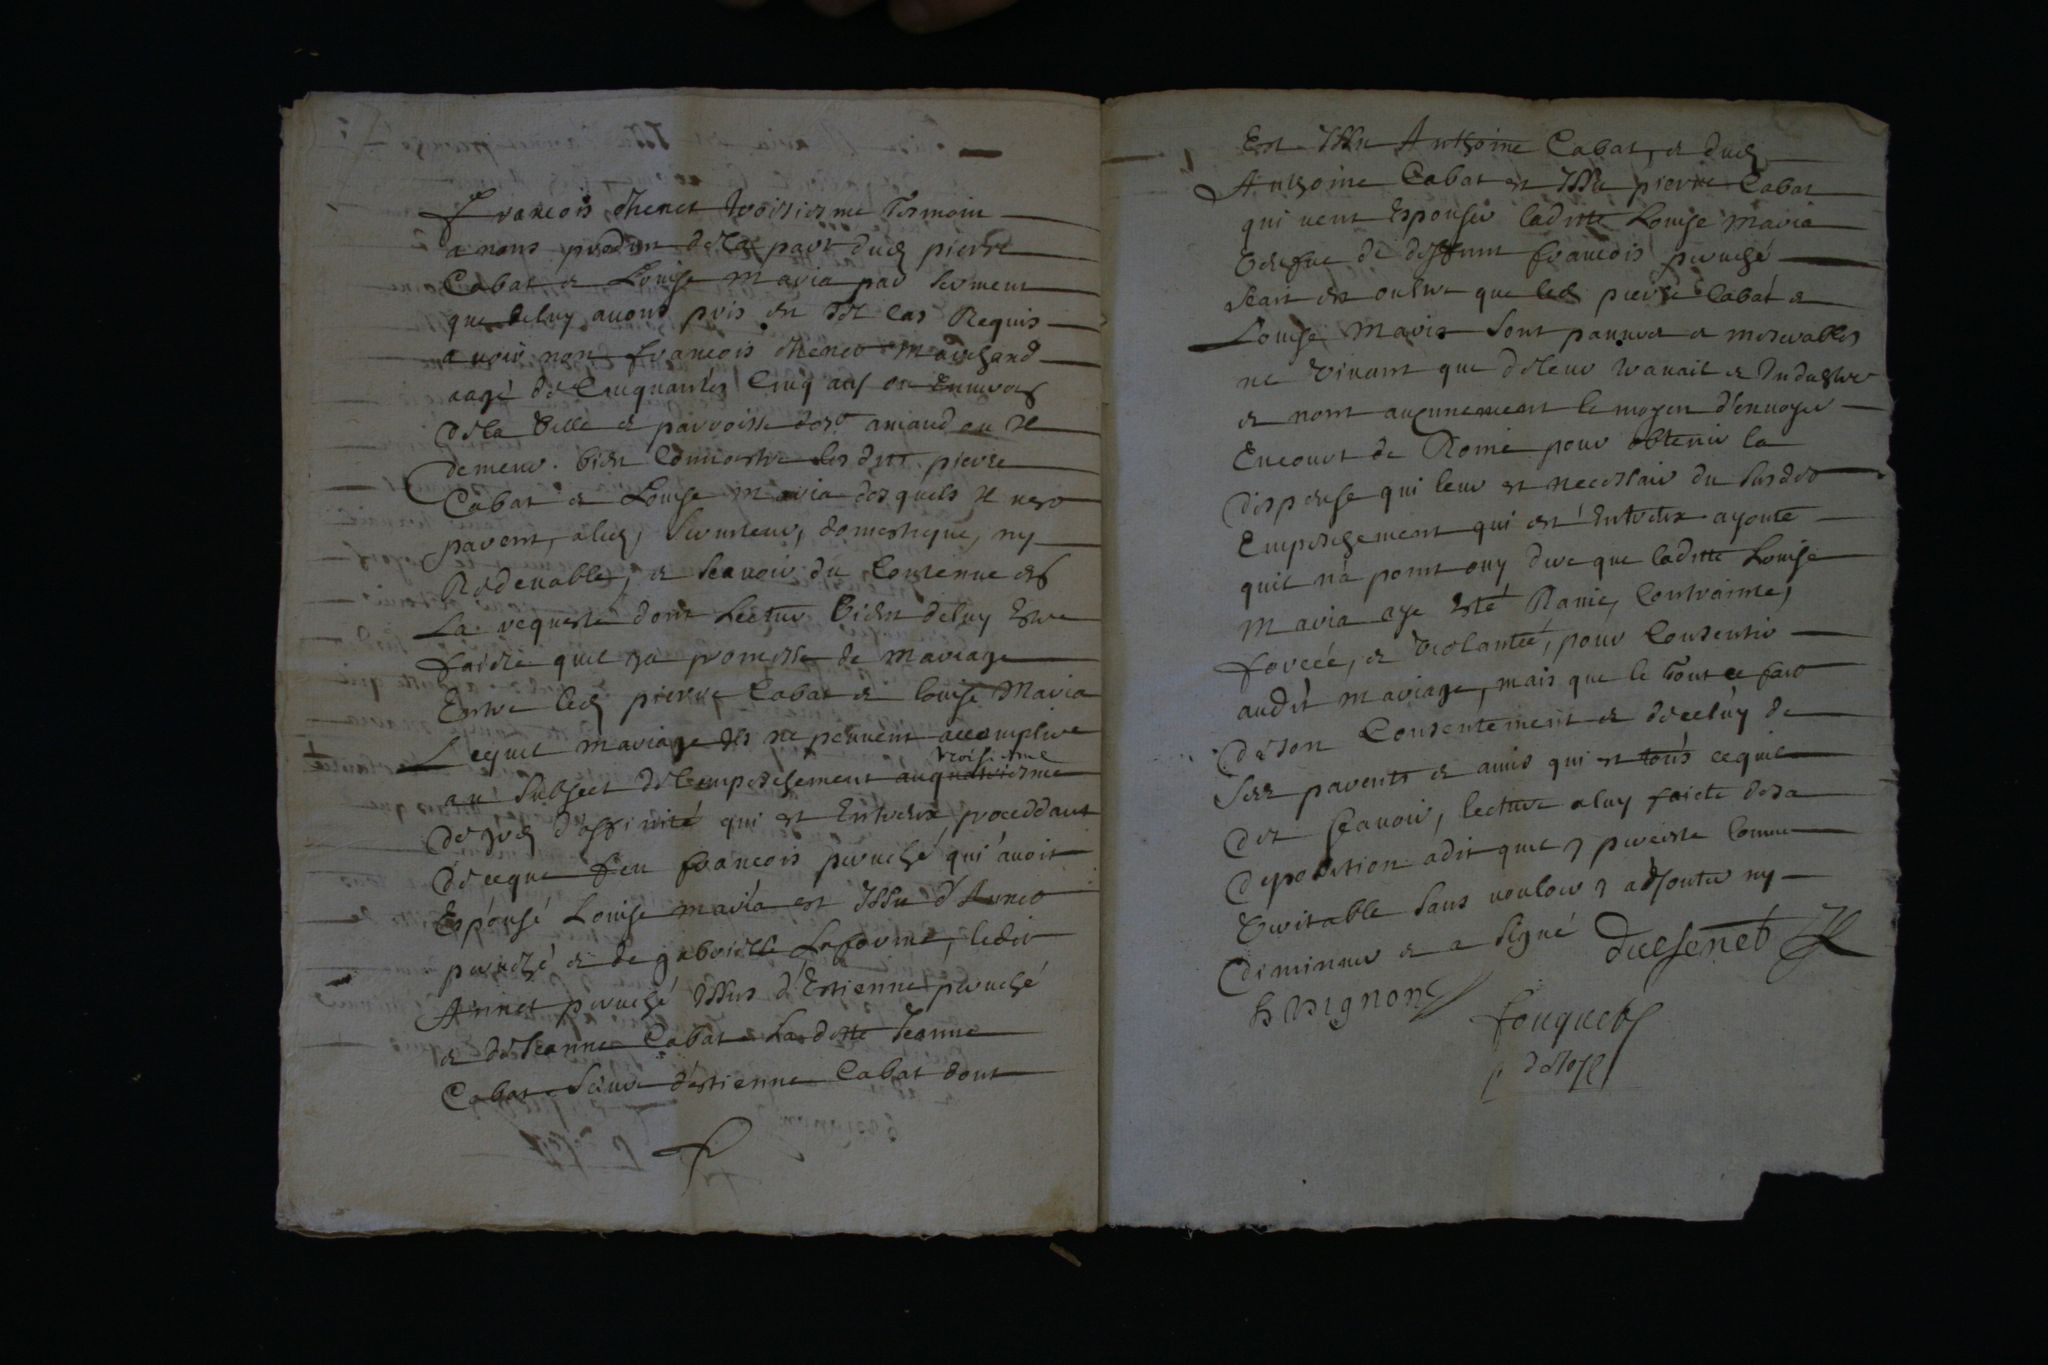 François chenet troisiesme Tesmoin
a nous produit de la part dud pierre
Cabat et Louise Maria par serment
que de luy avons pris en tel cas Requis
a noir nom françois chenet Marchand
aagé de Cinquantes Cinq ans ou Environs
de la Ville et parroisse de st amand ou Il
demeure bien Connoistre lesdits pierre
Cabat et Louise Maria desquels Il nest
parent, aliez, serviteur, domestique, ny
Redevable, et scavoir du Contenue en
La requeste dont Lecture Vient de luy Estre
faicte quil ya promesse de Mariage
Entre led pierre Cabat et louise Maria
Lequel mariage Ils ne peuvent accomplire
au subject de lempeschement au quatriesme
troisiesme
degred d'affinité qui est Entreux proceddant
de ceque feu françois peruché qui avoit
Espousé Louise maria est Issu d'Annet
peruché et de gabrielle Laforme, ledit
Annet peruché Issus d'Estienne peruché
et de Jeanne Cabat Laditte Jeanne
Cabat seure d'estienne Cabat dont
Est Issu Anthoine Cabat, et dud
Anthoine Cabat est Issu pierre Cabat
qui veut Espouser laditte Louise Maria
Vefve de deffunt françois peruché
scait en oultre que led pierre Cabat et
Louise Maria sont pauvres et miserables
ne Vivant que de leur travail et Industrie
et nont aucunement le moyen d'envoyer
En court de Rome pour obtenir la
dispense qui leur est necessair du susdit
Empeschement qui est Entreux ayoute
quil n'a point ouy dire que laditte Louise
Maria aye Esté Ravie, Contrainte,
forcée, et Violantée, pour Consentir
audit Mariage, mais que le tout ce fait
de son Consentement et de celuy de
ses parents et amis qui est tous cequil
dit scavoir, lecture a luy faicte de sa
deposition a dit quil y perciste Comme
Veritable sans vouloir y adjouter ny
diminuer et a signé
duchenet
h Vignon
fouquet